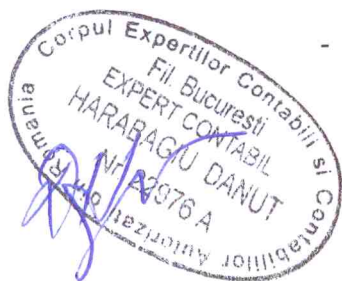 Corpul Expertilor Contabili si Contabililor Autorizati din Romania
Fil. Bucuresti
EXPERT CONTABIL
HARABAGIU DANUT
-